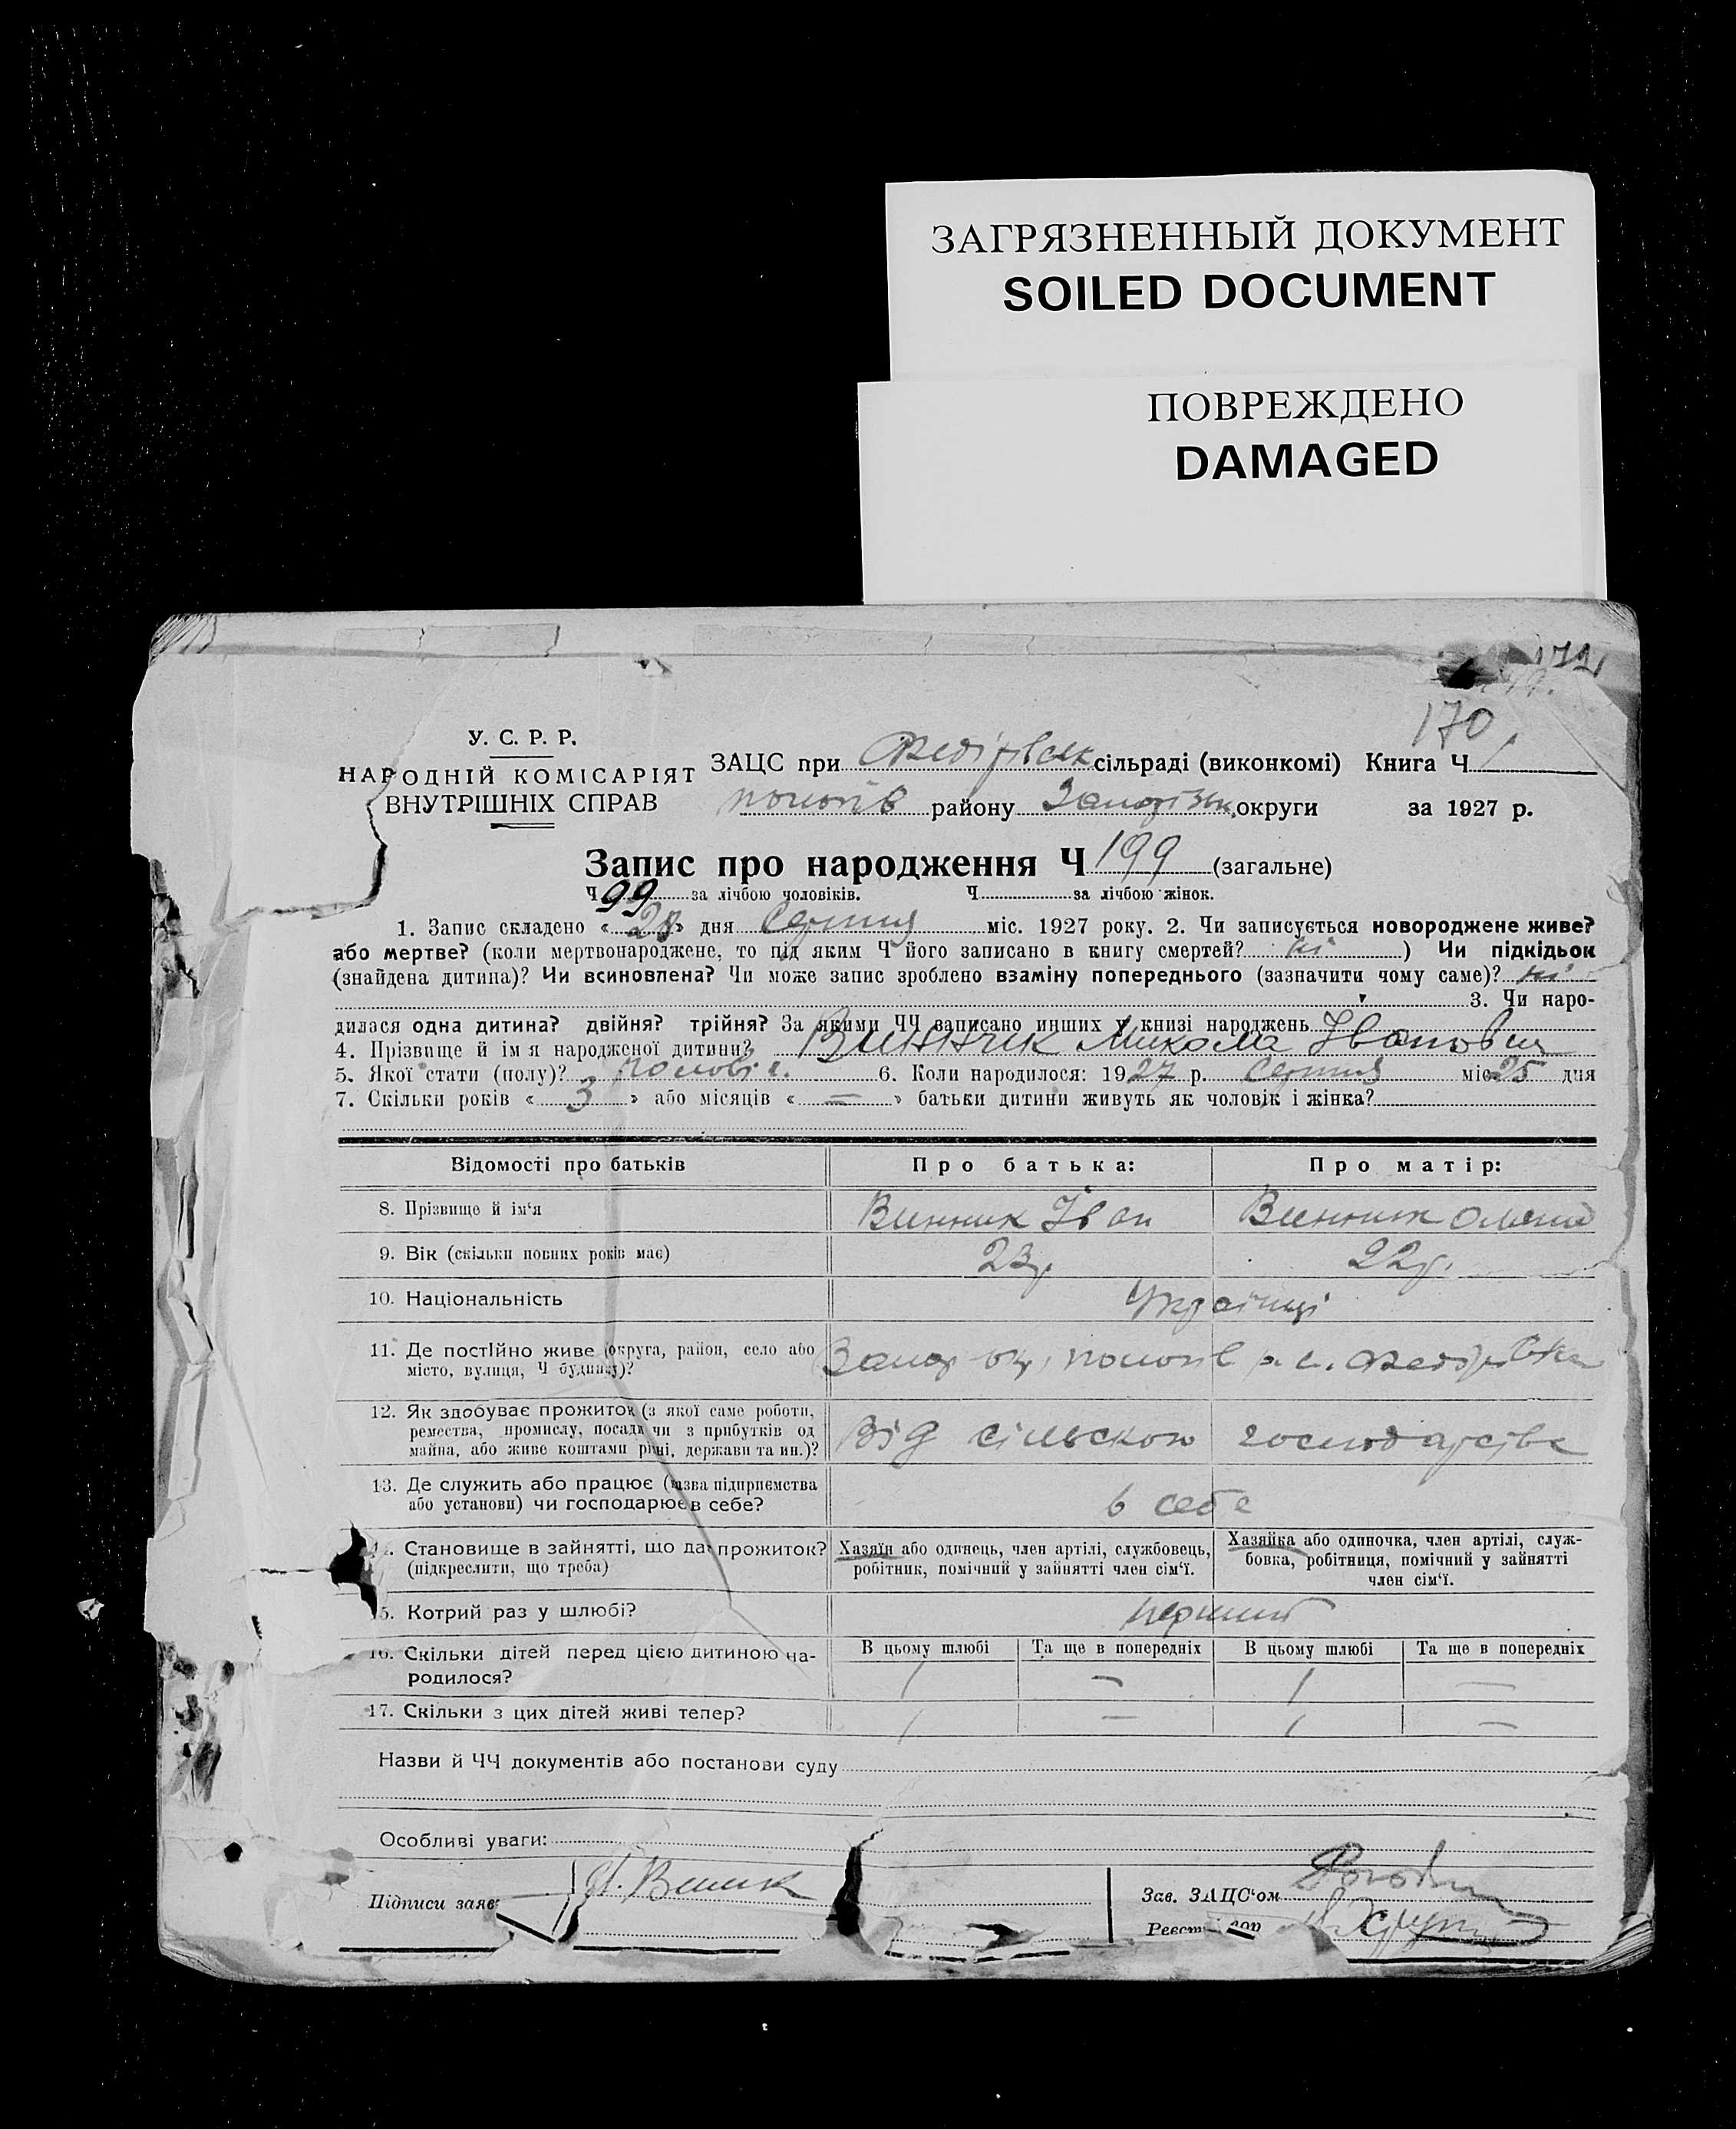 ЗАГРЯЗНЕННЫЙ ДОКУМЕНТ
SOILED DOCUMENT
ПОВРЕЖДЕНО
DAMAGED
172
170
У. С. Р. Р.
НАРОДНІЙ КОМІСАРІЯТ
ВНУТРІШНІХ СПРАВ
ЗАЦС при Федірівськ сільраді (виконкомі) Книга Ч 1
пологів району Запоріжж. округи за 1927 р.
Запис про народження Ч 199 (загальне)
Ч 99 за лічбою чоловіків. Ч за лічбою жінок.
1. Запис складено « 28 » дня Серпня міс. 1927 року. 2. Чи записується новороджене живе?
або мертве? (коли мертвонароджене, то під яким Ч його записано в книгу смертей? ні ) Чи підкідьок
(знайдена дитина)? Чи всиновлена? Чи може запис зроблено взаміну попереднього (зазначити чому саме)? ні
3. Чи наро-
дилася одна дитина? двійня? трійня? За якими ЧЧ записано инших у книзі народжень
4. Прізвище й імя народженої дитини? Винник Микола Іванович
5. Якої стати (полу)? чоловіч. 6. Коли народилося: 1927 р. Серпня міс 25 дня
7. Скільки років « 3 » або місяців « — » батьки дитини живуть як чоловік і жінка?
Відомості про батьків Про батька: Про матір:
8. Прізвище й ім‘я Винник Іван Винник
9. Вік (скільки повних років має) 23р. 22р.
10. Національність Українці
11. Де постійно живе (округа, район, село або Запор. ок, пологів р. с. Федірівка
місто, вулиця, Ч будинку)?
12. Як здобуває прожиток (з якої саме роботи,
ремества, промислу, посади чи з прибутків од Від сільського господарства
майна, або живе коштами рідні, держави та ин.)?
13. Де служить або працює (назва підприємства
або установи) чи господарює в себе? в себе
14. Становище в зайнятті, що дає прожиток? Хазяїн або одинець, член артілі, службовець, Хазяйка або одиночка, член артілі, служ-
(підкреслити, що треба) робітник, помічний у зайнятті член сім‘ї. бовка, робітниця, помічний у зайнятті
член сім‘ї.
15. Котрий раз у шлюбі? перший
16. Скільки дітей перед цією дитиною на- В цьому шлюбі Та ще в попередніх В цьому шлюбі Та ще в попередніх
родилося? 1 — 1 —
17. Скільки з цих дітей живі тепер? 1 — 1 —
Назви й ЧЧ документів або постанови суду
Особливі уваги:
Підписи заяв Зав. ЗАЦС‘ом
Реєст